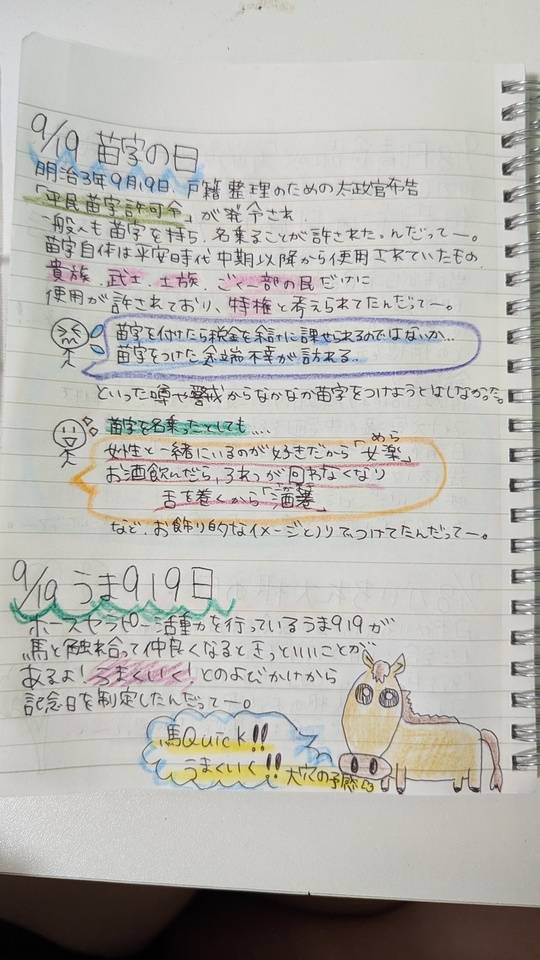 9/19 苗字の日
明治3年9月19日、戸籍整理のための太政官布告
「平民苗字許可令」が発令され、
一般人も苗字を持ち、名乗ることが許されたんだってー。
苗字自体は平安時代中期以降から使用されていたもの、
貴族、武士、士族、ごく一部の民だけに
使用が許されており、特権と考えられてたんだってー。
苗字を付けたら税金を余計に課せられるのではないか…
苗字をつけた途端不幸が訪れる…
といった噂や警戒からなかなか苗字をつけようとはしなかった。
苗字を名乗ったとしても….
女性と一緒にいるのが好きだから「女楽」
めら
お酒飲んだら、ろれつが回わなくなり
舌を巻くから「酒巻」
など、お飾り的なイメージとノリでつけてたんだってー。
9/19 うま919日
ホースセラピー活動を行っているうま919が
馬と触れ合って仲良くなるときっといいことが
あるよ!うまくいく!とのよびかけから
記念日を制定したんだってー。
馬Quick!!
うまくいく!! 大穴の予感